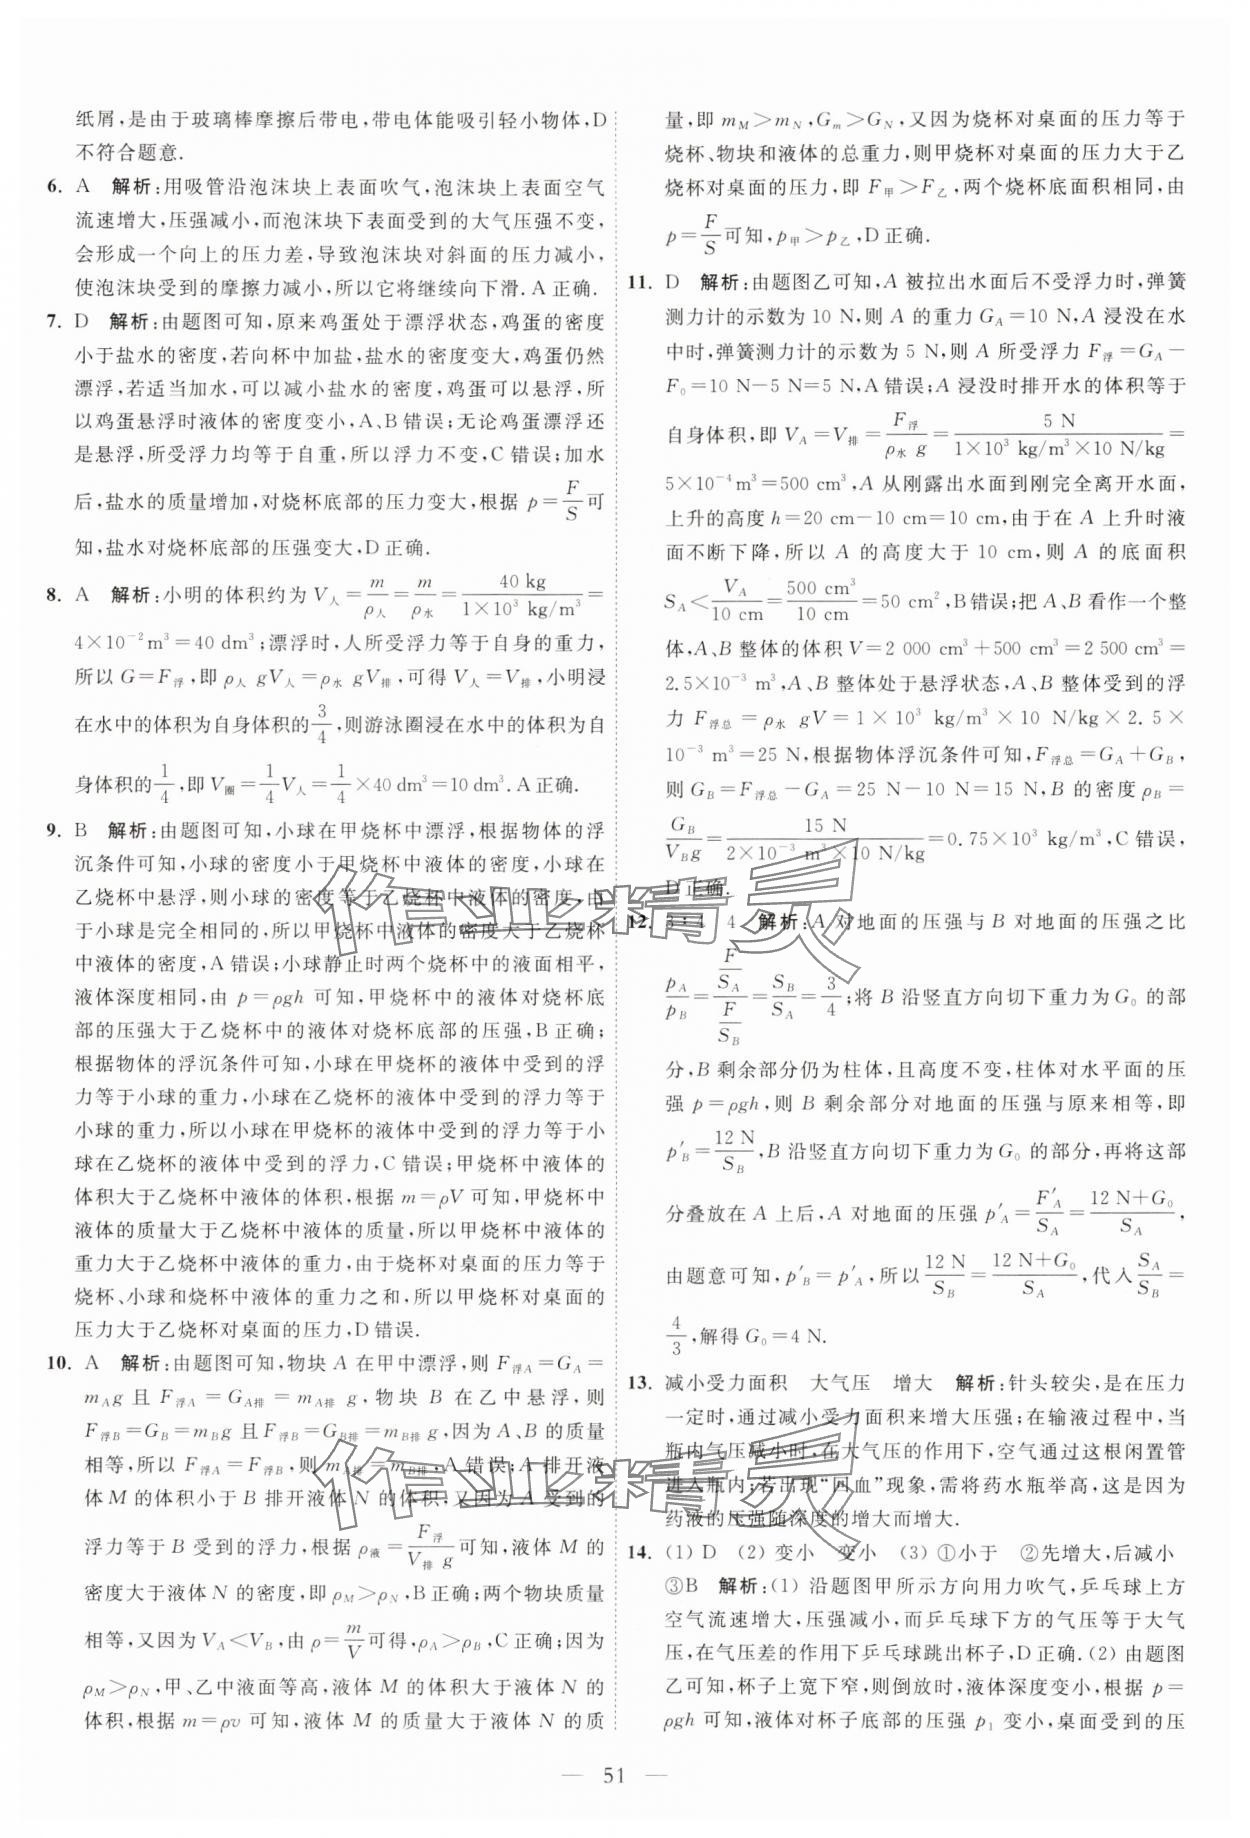 纸屑,是由于玻璃棒摩擦后带电,带电体能吸引轻小物体,D
不符合题意.
6. A 解析:用吸管沿泡沫块上表面吹气,泡沫块上表面空气
流速增大,压强减小,而泡沫块下表面受到的大气压强不变,
会形成一个向上的压力差,导致泡沫块对斜面的压力减小,
使泡沫块受到的摩擦力减小,所以它将继续向下滑.A 正确.
7. D 解析:由题图可知,原来鸡蛋处于漂浮状态,鸡蛋的密度
小于盐水的密度,若向杯中加盐,盐水的密度变大,鸡蛋仍然
漂浮,若适当加水,可以减小盐水的密度,鸡蛋可以悬浮,所
以鸡蛋悬浮时液体的密度变小,A、B 错误;无论鸡蛋漂浮还
是悬浮,所受浮力均等于自重,所以浮力不变,C 错误;加水
后,盐水的质量增加,对烧杯底部的压力变大,根据 p=F/S可
知,盐水对烧杯底部的压强变大,D 正确.
8. A 解析:小明的体积约为 V人=m/ρ人=m/ρ水=40 kg/(1×10³ kg/m³)=
4×10⁻² m³=40 dm³;漂浮时,人所受浮力等于自身的重力,
所以 G=F浮,即 ρ人 gV人=ρ水 gV排,可得 V人=V排,小明浸
在水中的体积为自身体积的3/4,则游泳圈浸在水中的体积为自
身体积的1/4,即 V圈=1/4V人=1/4×40 dm³=10 dm³.A 正确.
9. B 解析:由题图可知,小球在甲烧杯中漂浮,根据物体的浮
沉条件可知,小球的密度小于甲烧杯中液体的密度,小球在
乙烧杯中悬浮,则小球的密度等于乙烧杯中液体的密度,由
于小球是完全相同的,所以甲烧杯中液体的密度大于乙烧杯
中液体的密度,A 错误;小球静止时两个烧杯中的液面相平,
液体深度相同,由 p=ρgh 可知,甲烧杯中的液体对烧杯底
部的压强大于乙烧杯中的液体对烧杯底部的压强,B 正确;
根据物体的浮沉条件可知,小球在甲烧杯的液体中受到的浮
力等于小球的重力,小球在乙烧杯的液体中受到的浮力等于
小球的重力,所以小球在甲烧杯的液体中受到的浮力等于小
球在乙烧杯的液体中受到的浮力,C 错误;甲烧杯中液体的
体积大于乙烧杯中液体的体积,根据 m=ρV 可知,甲烧杯中
液体的质量大于乙烧杯中液体的质量,所以甲烧杯中液体的
重力大于乙烧杯中液体的重力,由于烧杯对桌面的压力等于
烧杯、小球和烧杯中液体的重力之和,所以甲烧杯对桌面的
压力大于乙烧杯对桌面的压力,D 错误.
10. A 解析:由题图可知,物块 A 在甲中漂浮,则 F浮A=GA=
mAg 且 F浮A=GA排=mA排 g,物块 B 在乙中悬浮,则
F浮B=GB=mBg 且 F浮B=GB排=mB排 g,因为 A、B 的质量
相等,所以 F浮A=F浮B,则 mA排=mB排,A 错误;A 排开液
体 M 的体积小于 B 排开液体 N 的体积,又因为 A 受到的
浮力等于 B 受到的浮力,根据 ρ液=F浮/(V排 g)可知,液体 M 的
密度大于液体 N 的密度,即 ρM>ρN,B 正确;两个物块质量
相等,又因为 VA<VB,由 ρ=m/V可得,ρA>ρB,C 正确;因为
ρM>ρN,甲、乙中液面等高,液体 M 的体积大于液体 N 的
体积,根据 m=ρv 可知,液体 M 的质量大于液体 N 的质
量,即 mM>mN,Gm>GN,又因为烧杯对桌面的压力等于
烧杯、物块和液体的总重力,则甲烧杯对桌面的压力大于乙
烧杯对桌面的压力,即 F甲>F乙,两个烧杯底面积相同,由
p=F/S可知,p甲>p乙,D 正确.
11. D 解析:由题图乙可知,A 被拉出水面后不受浮力时,弹簧
测力计的示数为 10 N,则 A 的重力 GA=10 N,A 浸没在水
中时,弹簧测力计的示数为 5 N,则 A 所受浮力 F浮=GA-
F0=10 N-5 N=5 N,A 错误;A 浸没时排开水的体积等于
自身体积,即 VA=V排=F浮/(ρ水 g)=5 N/(1×10³ kg/m³×10 N/kg)=
5×10⁻⁴ m³=500 cm³,A 从刚露出水面到刚完全离开水面,
上升的高度 h=20 cm-10 cm=10 cm,由于在 A 上升时液
面不断下降,所以 A 的高度大于 10 cm,则 A 的底面积
SA<VA/10 cm=500 cm³/10 cm=50 cm²,B 错误;把 A、B 看作一个整
体,A、B 整体的体积 V=2 000 cm³+500 cm³=2 500 cm³=
2.5×10⁻³ m³,A、B 整体处于悬浮状态,A、B 整体受到的浮
力 F浮总=ρ水 gV=1×10³ kg/m³×10 N/kg×2.5×
10⁻³ m³=25 N,根据物体浮沉条件可知,F浮总=GA+GB,
则 GB=F浮总-GA=25 N-10 N=15 N,B 的密度 ρB=
GB/(VBg)=15 N/(2×10⁻³ m³×10 N/kg)=0.75×10³ kg/m³,C 错误,
D 正确.
12. 3∶4 4 解析:A 对地面的压强与 B 对地面的压强之比
pA/pB=(F/SA)/(F/SB)=SB/SA=3/4;将 B 沿竖直方向切下重力为 G0 的部
分,B 剩余部分仍为柱体,且高度不变,柱体对水平面的压
强 p=ρgh,则 B 剩余部分对地面的压强与原来相等,即
p′B=12 N/SB,B 沿竖直方向切下重力为 G0 的部分,再将这部
分叠放在 A 上后,A 对地面的压强 p′A=F′A/SA=(12 N+G0)/SA,
由题意可知,p′B=p′A,所以12 N/SB=(12 N+G0)/SA,代入SA/SB=
4/3,解得 G0=4 N.
13. 减小受力面积 大气压 增大 解析:针头较尖,是在压力
一定时,通过减小受力面积来增大压强;在输液过程中,当
瓶内气压减小时,在大气压的作用下,空气通过这根闲置管
进入瓶内;若出现“回血”现象,需将药水瓶举高,这是因为
药液的压强随深度的增大而增大.
14. (1) D (2) 变小 变小 (3) ①小于 ②先增大,后减小
③B 解析:(1) 沿题图甲所示方向用力吹气,乒乓球上方
空气流速增大,压强减小,而乒乓球下方的气压等于大气
压,在气压差的作用下乒乓球跳出杯子,D 正确.(2) 由题图
乙可知,杯子上宽下窄,则倒放时,液体深度变小,根据 p=
ρgh 可知,液体对杯子底部的压强 p1 变小,桌面受到的压
— 51 —
作业精灵
作业精灵